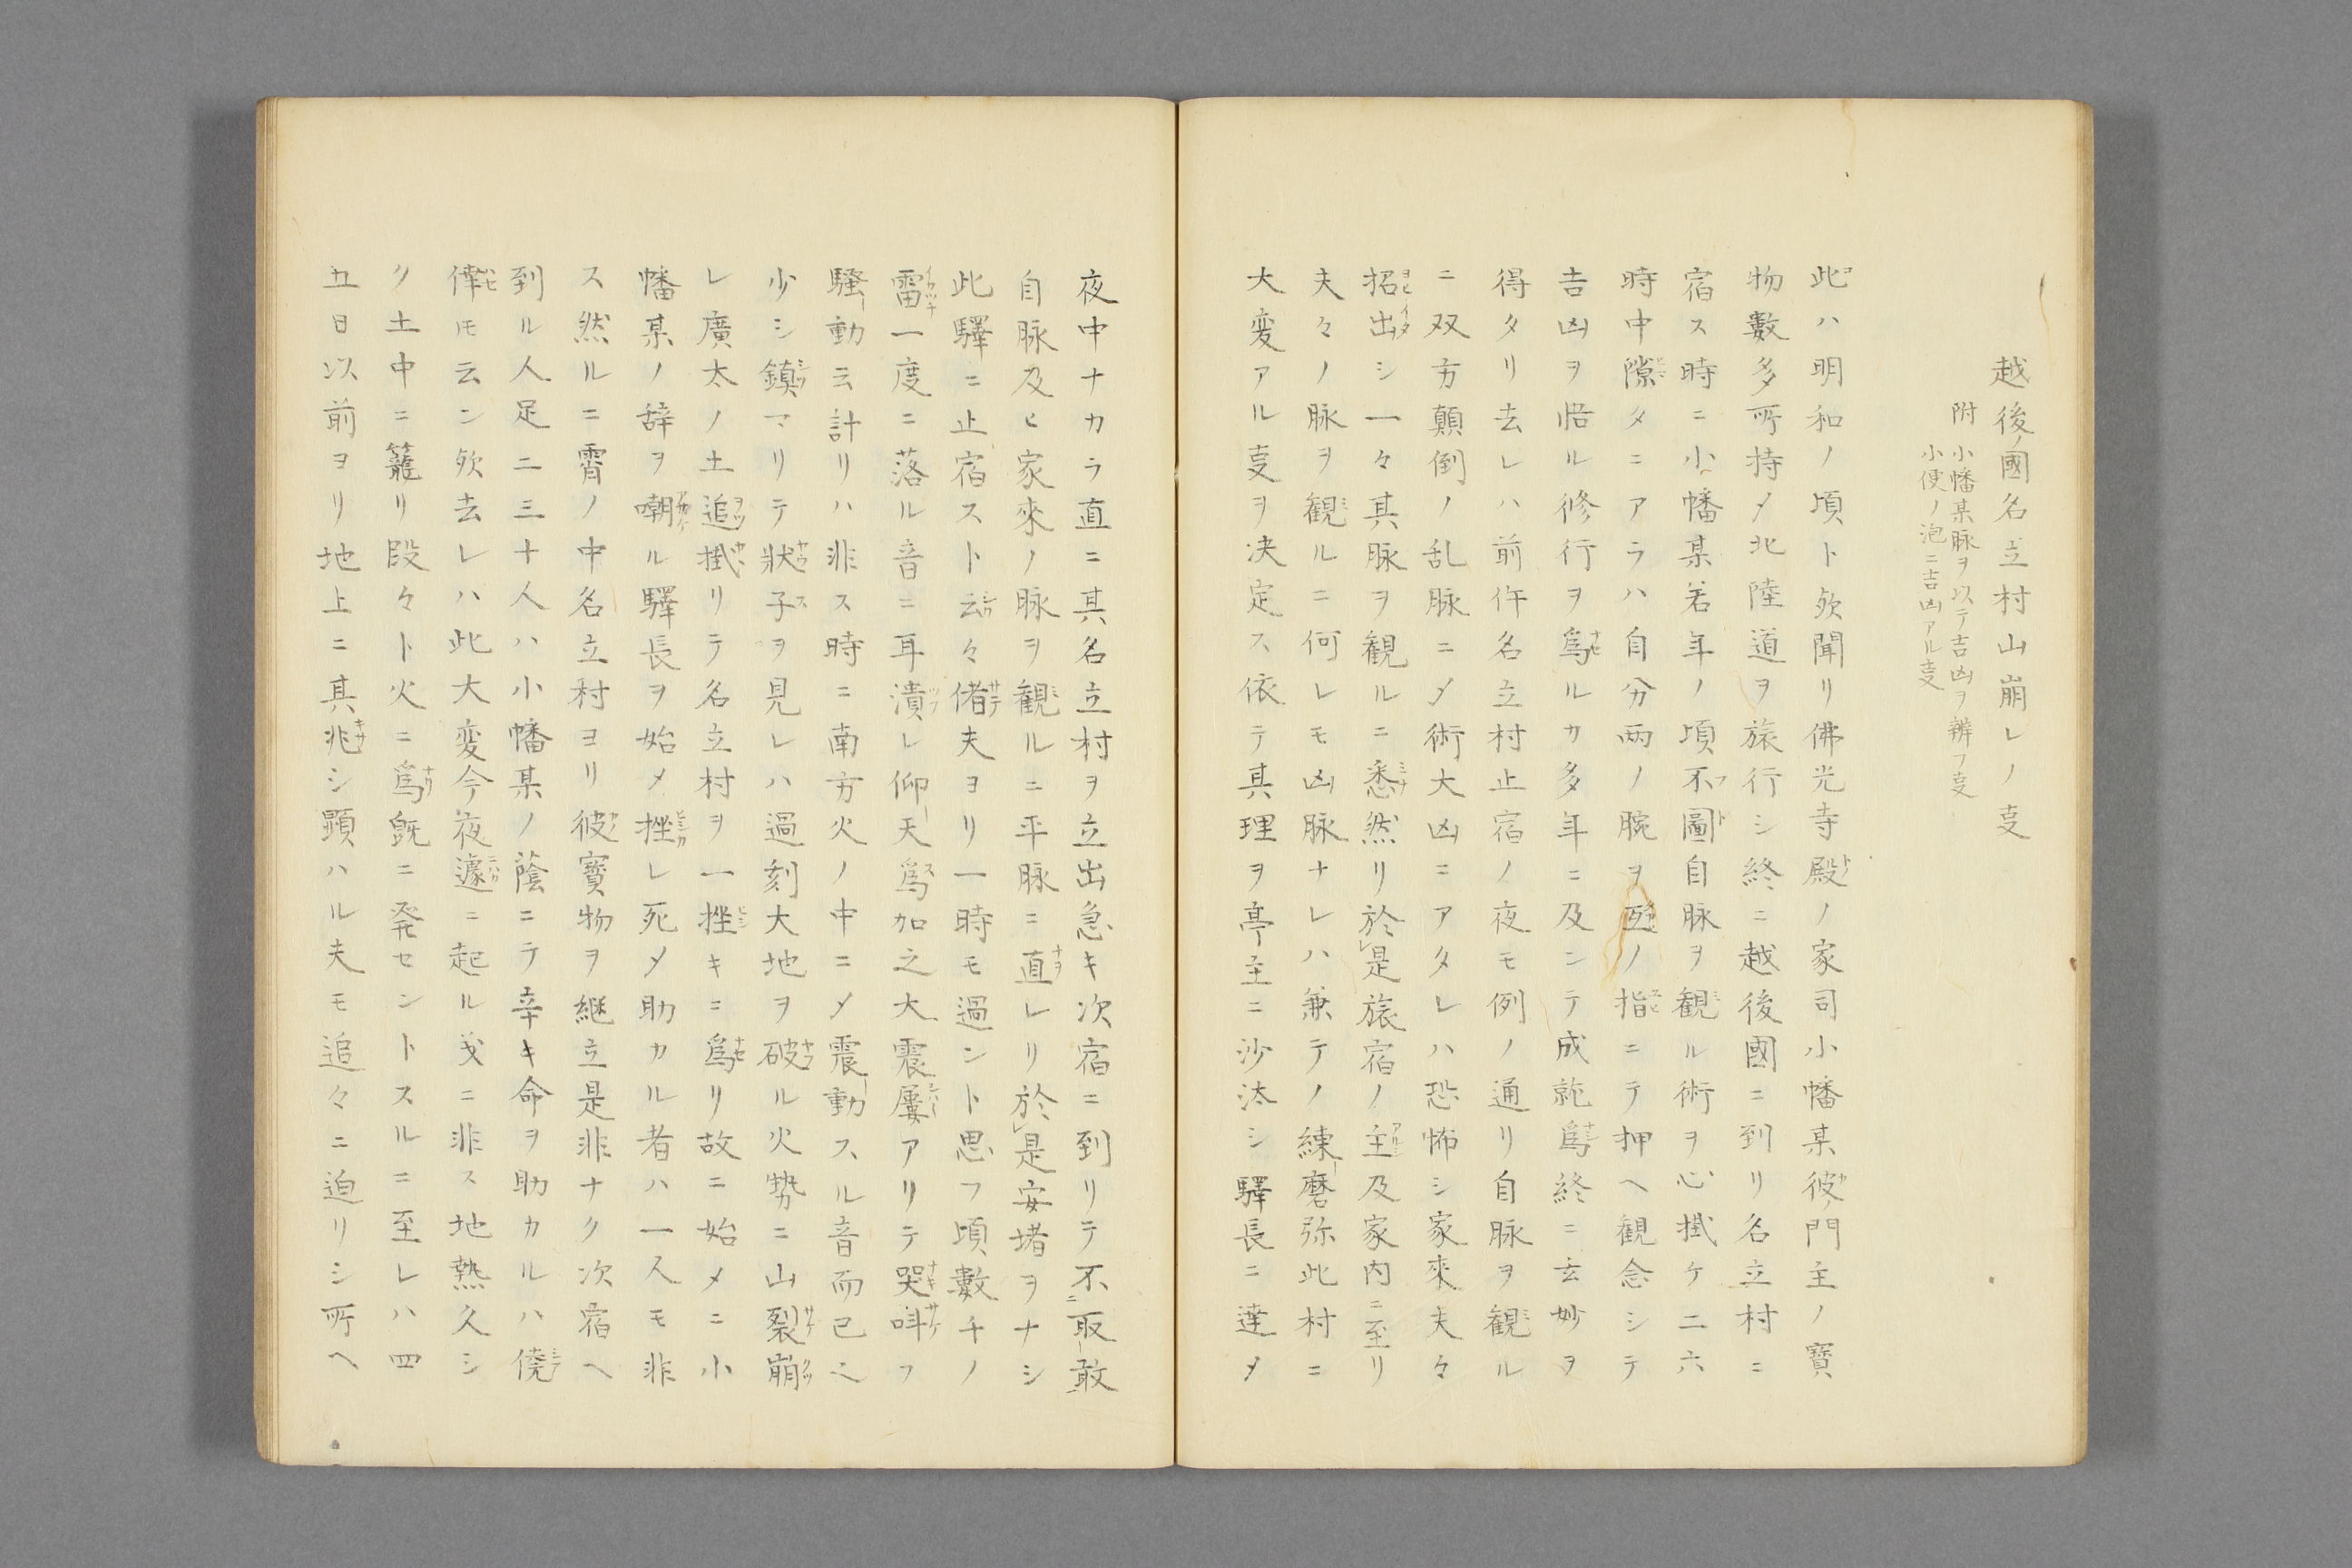 越後ノ國名立村山崩レノ叓
附 小幡某脉ヲ以テ吉凶ヲ辨フ叓
小便ノ泡ニ吉凶アル叓
此ハ明和ノ頃ト欤聞リ佛光寺殿ノ家司小幡某彼門主ノ寶
物數多所持〆北陸道ヲ旅行シ終ニ越後國ニ到リ名立村ニ
宿ス時ニ小幡某若年ノ頃不圖自脉ヲ観ル術ヲ心掛ケ二六
時中隙タニアラハ自分両ノ腕ヲ互ノ指ニテ押ヘ観念シテ
吉凶ヲ悟ル修行ヲ爲ルカ多年ニ及ンテ成就爲終ニ玄妙ヲ
得タリ去レハ前件名立村止宿ノ夜モ例ノ通リ自脉ヲ観ル
ニ双方顛倒ノ乱脉ニ〆術大凶ニアタレハ恐怖シ家來夫々
招出シ一々其脉ヲ観ルニ悉然リ於是旅宿ノ主及家内ニ至リ
夫々ノ脉ヲ観ルニ何レモ凶脉ナレハ兼テノ練磨弥此村ニ
大変アル叓ヲ决定ス依テ其理ヲ亭主ニ沙汰シ驛長ニ達〆
夜中ナカラ直ニ其名立村ヲ立出急キ次宿ニ到リテ不取敢
自脉及ヒ家來ノ脉ヲ観ルニ平脉ニ直レリ於是安堵ヲナシ
此驛ニ止宿スト云々偖夫ヨリ一時モ過ント思フ頃數千ノ
雷一度ニ落ル音ニ耳潰レ仰天爲加之大震屢アリテ哭呌フ
騒動云計リハ非ス時ニ南方火ノ中ニ〆震動スル音而已之
少シ鎮マリテ狀子ヲ見レハ過刻大地ヲ破ル火勢ニ山裂崩
レ廣太ノ土追掛リテ名立村ヲ一挫キニ爲リ故ニ始メニ小
幡某ノ辞ヲ嘲ル驛長ヲ始メ挫レ死〆助カル者ハ一人モ非
ス然ルニ霄ノ中名立村ヨリ彼寶物ヲ継立是非ナク次宿ヘ
到ル人足二三十人ハ小幡某ノ蔭ニテ辛キ命ヲ助カルハ僥
倖𪜈云ン欤去レハ此大変今夜遽ニ起ル㐧ニ非ス地熱久シ
ク土中ニ籠リ段々ト火ニ爲既ニ発セントスルニ至レハ四
五日以前ヨリ地上ニ其兆シ顕ハル夫モ追々ニ迫リシ所ヘ